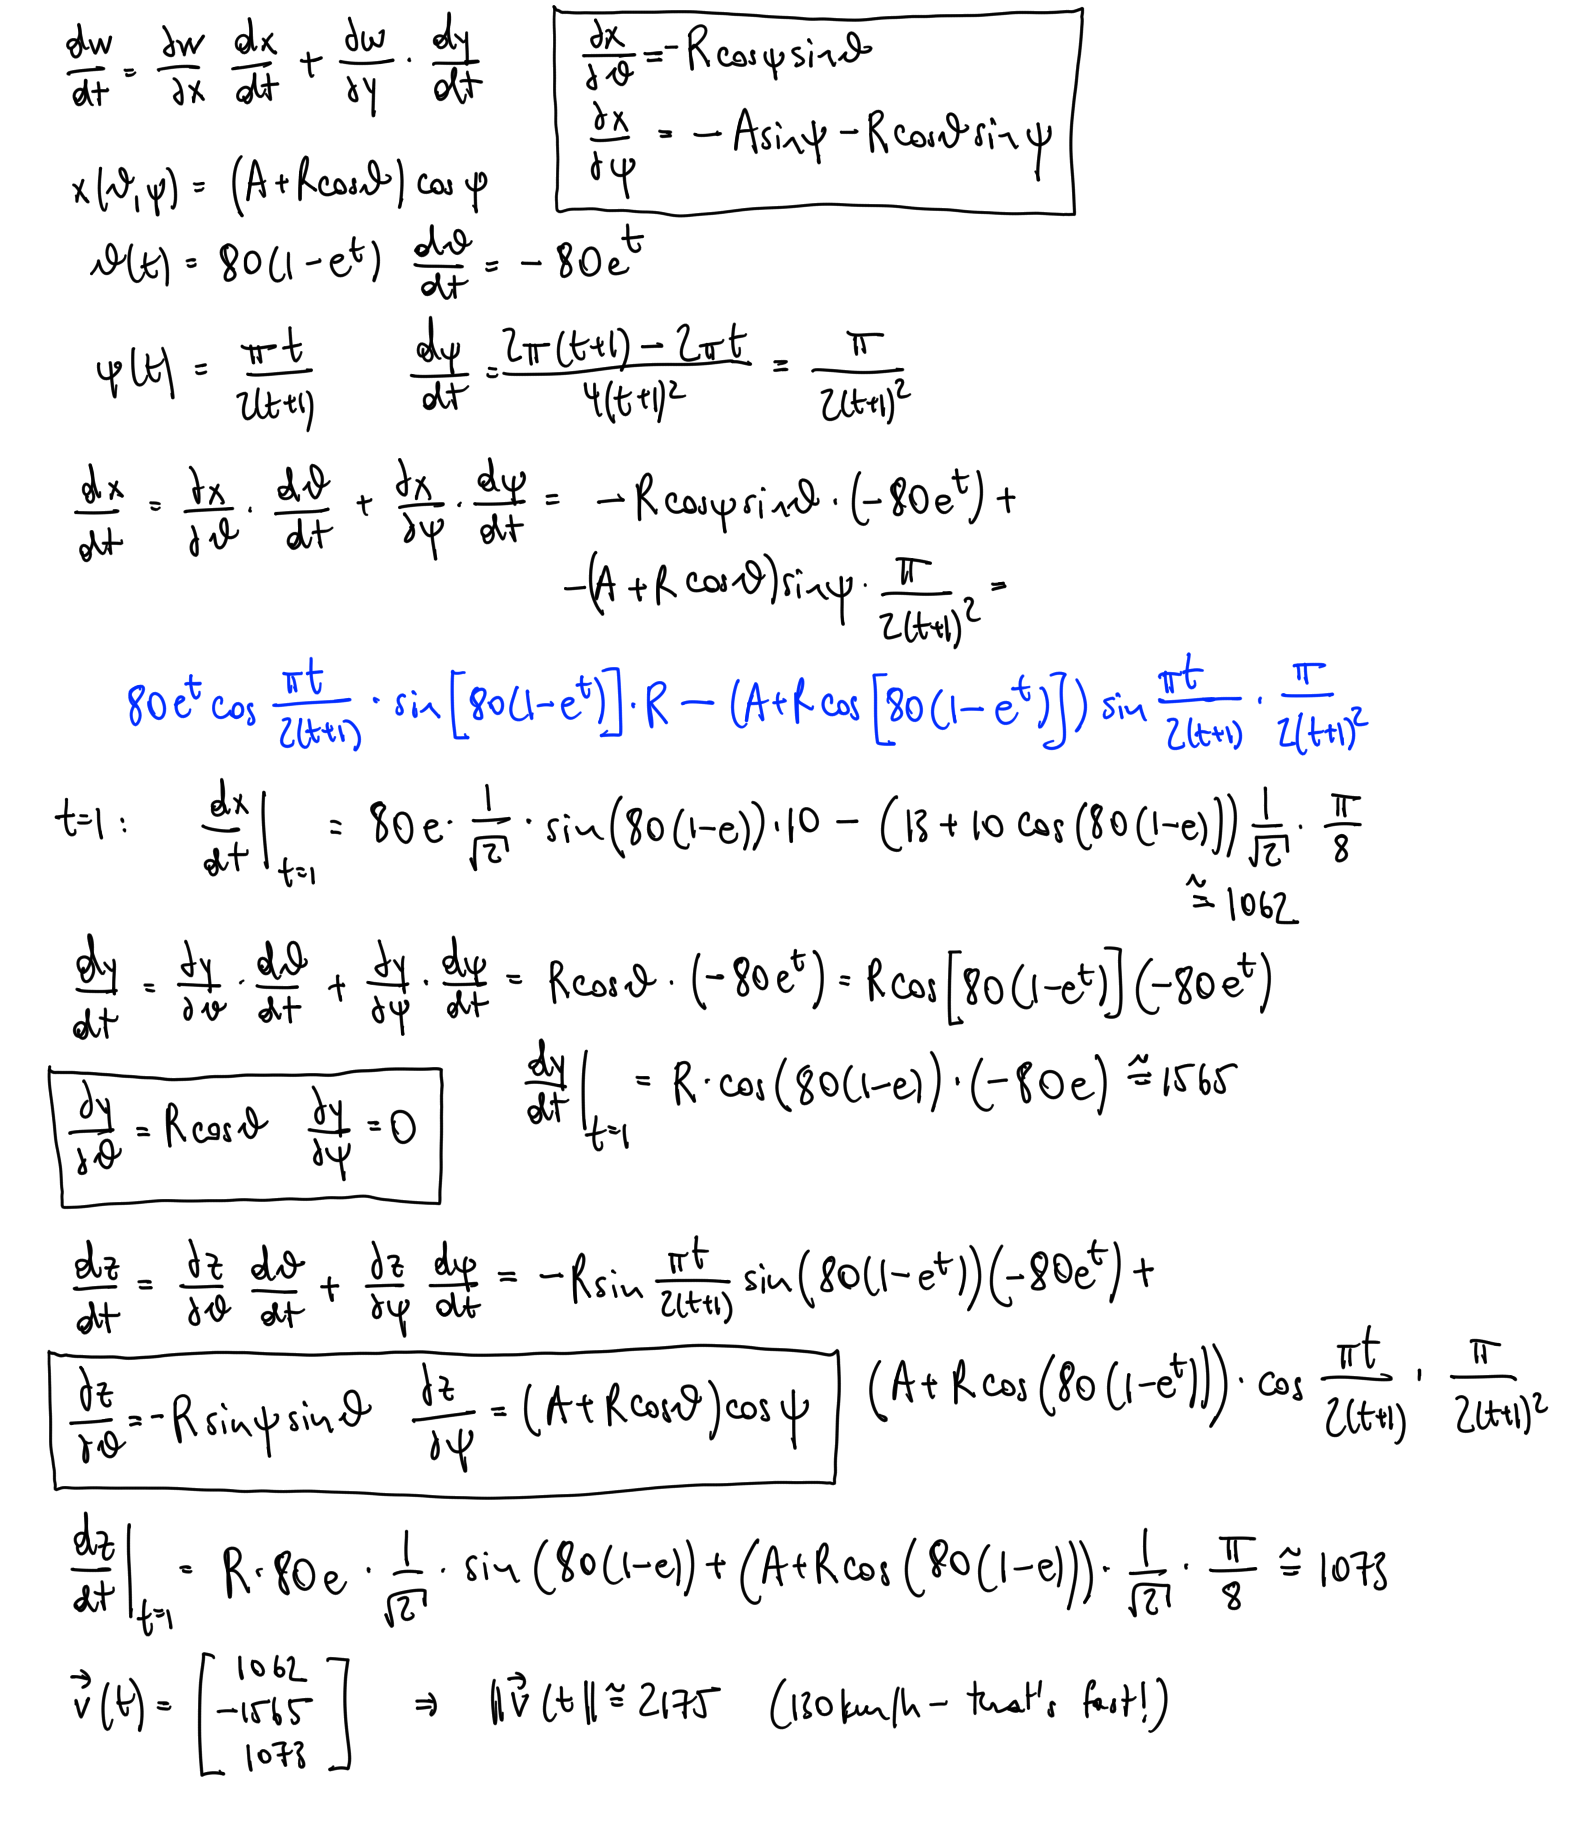 dw/dt = ∂w/∂x dx/dt + ∂w/∂y · dy/dt
∂x/∂ϑ = -R cosψ sinϑ
∂x/∂ψ = - A sinψ - R cosϑ sin ψ
x(ϑ,ψ) = (A + R cosϑ) cos ψ
ϑ(t) = 80(1 - e^t) dϑ/dt = - 80e^t
ψ(t) = πt/2(t+1) dψ/dt = (2π(t+1) - 2πt)/4(t+1)² = π/2(t+1)²
dx/dt = ∂x/∂ϑ · dϑ/dt + ∂x/∂ψ · dψ/dt = - R cosψ sinϑ · (-80e^t) +
-(A + R cosϑ) sinψ · π/2(t+1)² =
80e^t cos πt/2(t+1) · sin[80(1-e^t)] · R - (A + R cos[80(1-e^t)]) sin πt/2(t+1) · π/2(t+1)²
t=1: dx/dt|t=1 = 80e · 1/√2 · sin(80(1-e)) · 10 - (13 + 10 cos(80(1-e))) 1/√2 · π/8
≅ 1062
dy/dt = ∂y/∂ϑ · dϑ/dt + ∂y/∂ψ · dψ/dt = R cosϑ · (-80e^t) = R cos[80(1-e^t)](-80e^t)
dy/dt|t=1 = R · cos(80(1-e)) · (-80e) ≅ 1565
∂y/∂ϑ = R cosϑ ∂y/∂ψ = 0
dz/dt = ∂z/∂ϑ dϑ/dt + ∂z/∂ψ dψ/dt = - R sin πt/2(t+1) sin(80(1-e^t))(-80e^t) +
(A + R cos(80(1-e^t))) · cos πt/2(t+1) · π/2(t+1)²
∂z/∂ϑ = -R sinψ sinϑ ∂z/∂ψ = (A + R cosϑ) cos ψ
dz/dt|t=1 = R · 80e · 1/√2 · sin(80(1-e)) + (A + R cos(80(1-e))) · 1/√2 · π/8 ≅ 1073
v⃗(t) = [1062 -1565 1073] ⇒ ‖v⃗(t‖ ≅ 2175 (130 km/h - that's fast!)